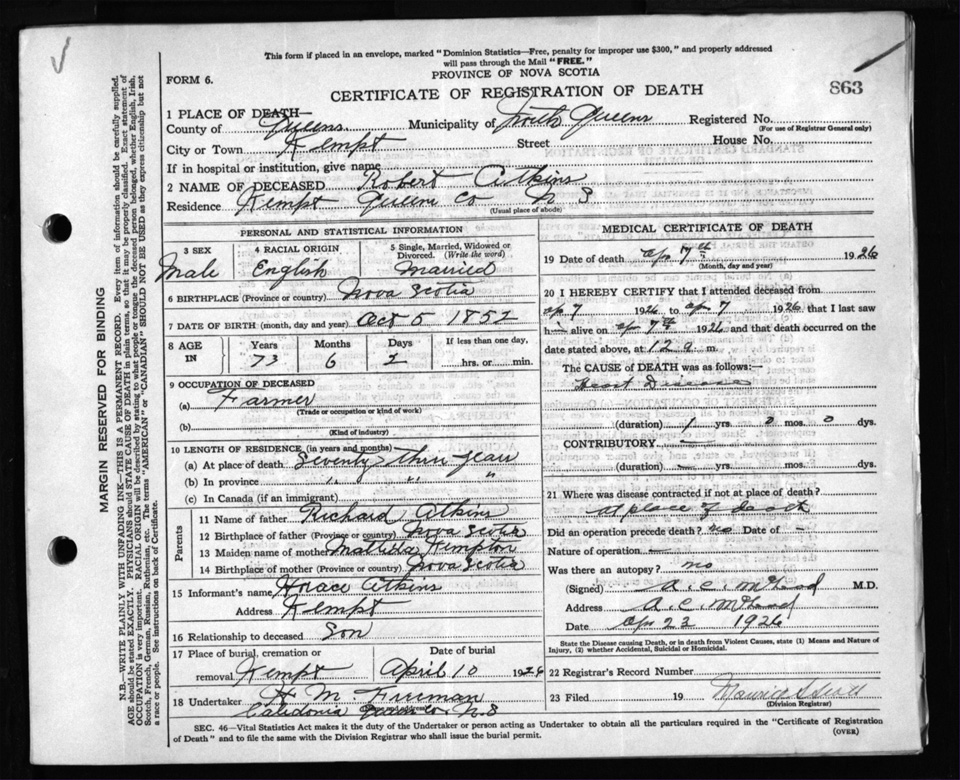 This form if placed in an envelope, marked "Dominion Statistics—Free, penalty for improper use $300," and properly addressed
will pass through the Mail "FREE."
FORM 6.
PROVINCE OF NOVA SCOTIA
CERTIFICATE OF REGISTRATION OF DEATH
863
1 PLACE OF DEATH—
County of Queens Municipality of North Queens Registered No.
(For use of Registrar General only)
City or Town Kempt Street House No.
If in hospital or institution, give name
2 NAME OF DECEASED Robert Atkins
Residence Kempt Queens Co N S
(Usual place of abode)
PERSONAL AND STATISTICAL INFORMATION
3 SEX 4 RACIAL ORIGIN 5 Single, Married, Widowed or Divorced. (Write the word)
Male English Married
6 BIRTHPLACE (Province or country) Nova Scotia
7 DATE OF BIRTH (month, day and year) Oct 5 1852
8 AGE IN Years Months Days If less than one day,
73 6 2 hrs. or min.
9 OCCUPATION OF DECEASED
(a) Farmer
(Trade or occupation or kind of work)
(b)
(Kind of industry)
10 LENGTH OF RESIDENCE (in years and months)
(a) At place of death Seventy three years
(b) In province " " "
(c) In Canada (if an immigrant)
Parents
11 Name of father Richard Atkins
12 Birthplace of father (Province or country) Nova Scotia
13 Maiden name of mother Matilda Kempton
14 Birthplace of mother (Province or country) Nova Scotia
15 Informant's name Horace Atkins
Address Kempt
16 Relationship to deceased Son
17 Place of burial, cremation or Date of burial
removal Kempt April 10 1926
18 Undertaker H M Freeman
Caledonia Queens Co N.S
MEDICAL CERTIFICATE OF DEATH
19 Date of death Apr 7th 1926
(Month, day and year)
20 I HEREBY CERTIFY that I attended deceased from
Apr 7 1926 to Apr 7 1926 that I last saw
him alive on Apr 7th 1926 and that death occurred on the
date stated above, at 12 a m.
The CAUSE of DEATH was as follows:
Heart Disease
(duration) 1 yrs. 0 mos. 0 dys.
CONTRIBUTORY —
(duration) — yrs. mos. dys.
21 Where was disease contracted if not at place of death?
at place of death
Did an operation precede death? no Date of —
Nature of operation —
Was there an autopsy? no
(Signed) A. C. McLeod M.D.
Address A. C. McLeod
Date Apr 23 1926
State the Disease causing Death, or in death from Violent Causes, state (1) Means and Nature of
Injury, (2) whether Accidental, Suicidal or Homicidal.
22 Registrar's Record Number
23 Filed 19 Maurice
(Division Registrar)
SEC. 46—Vital Statistics Act makes it the duty of the Undertaker or person acting as Undertaker to obtain all the particulars required in the "Certificate of Registration
of Death" and to file the same with the Division Registrar who shall issue the burial permit.
(OVER)
MARGIN RESERVED FOR BINDING
N.B.—WRITE PLAINLY WITH UNFADING INK—THIS IS A PERMANENT RECORD. Every item of information should be carefully supplied.
AGE should be stated EXACTLY. PHYSICIANS should STATE CAUSE OF DEATH in plain terms, so that it may be properly classified. Exact statement of
OCCUPATION is very important. RACIAL ORIGIN will be described by stating to what people or tongue the deceased person belonged, whether English, Irish,
Scotch, French, German, Russian, Ruthenian, etc. The terms "AMERICAN" or "CANADIAN" SHOULD NOT BE USED as they express citizenship but not
a race or people. See instructions on back of Certificate.